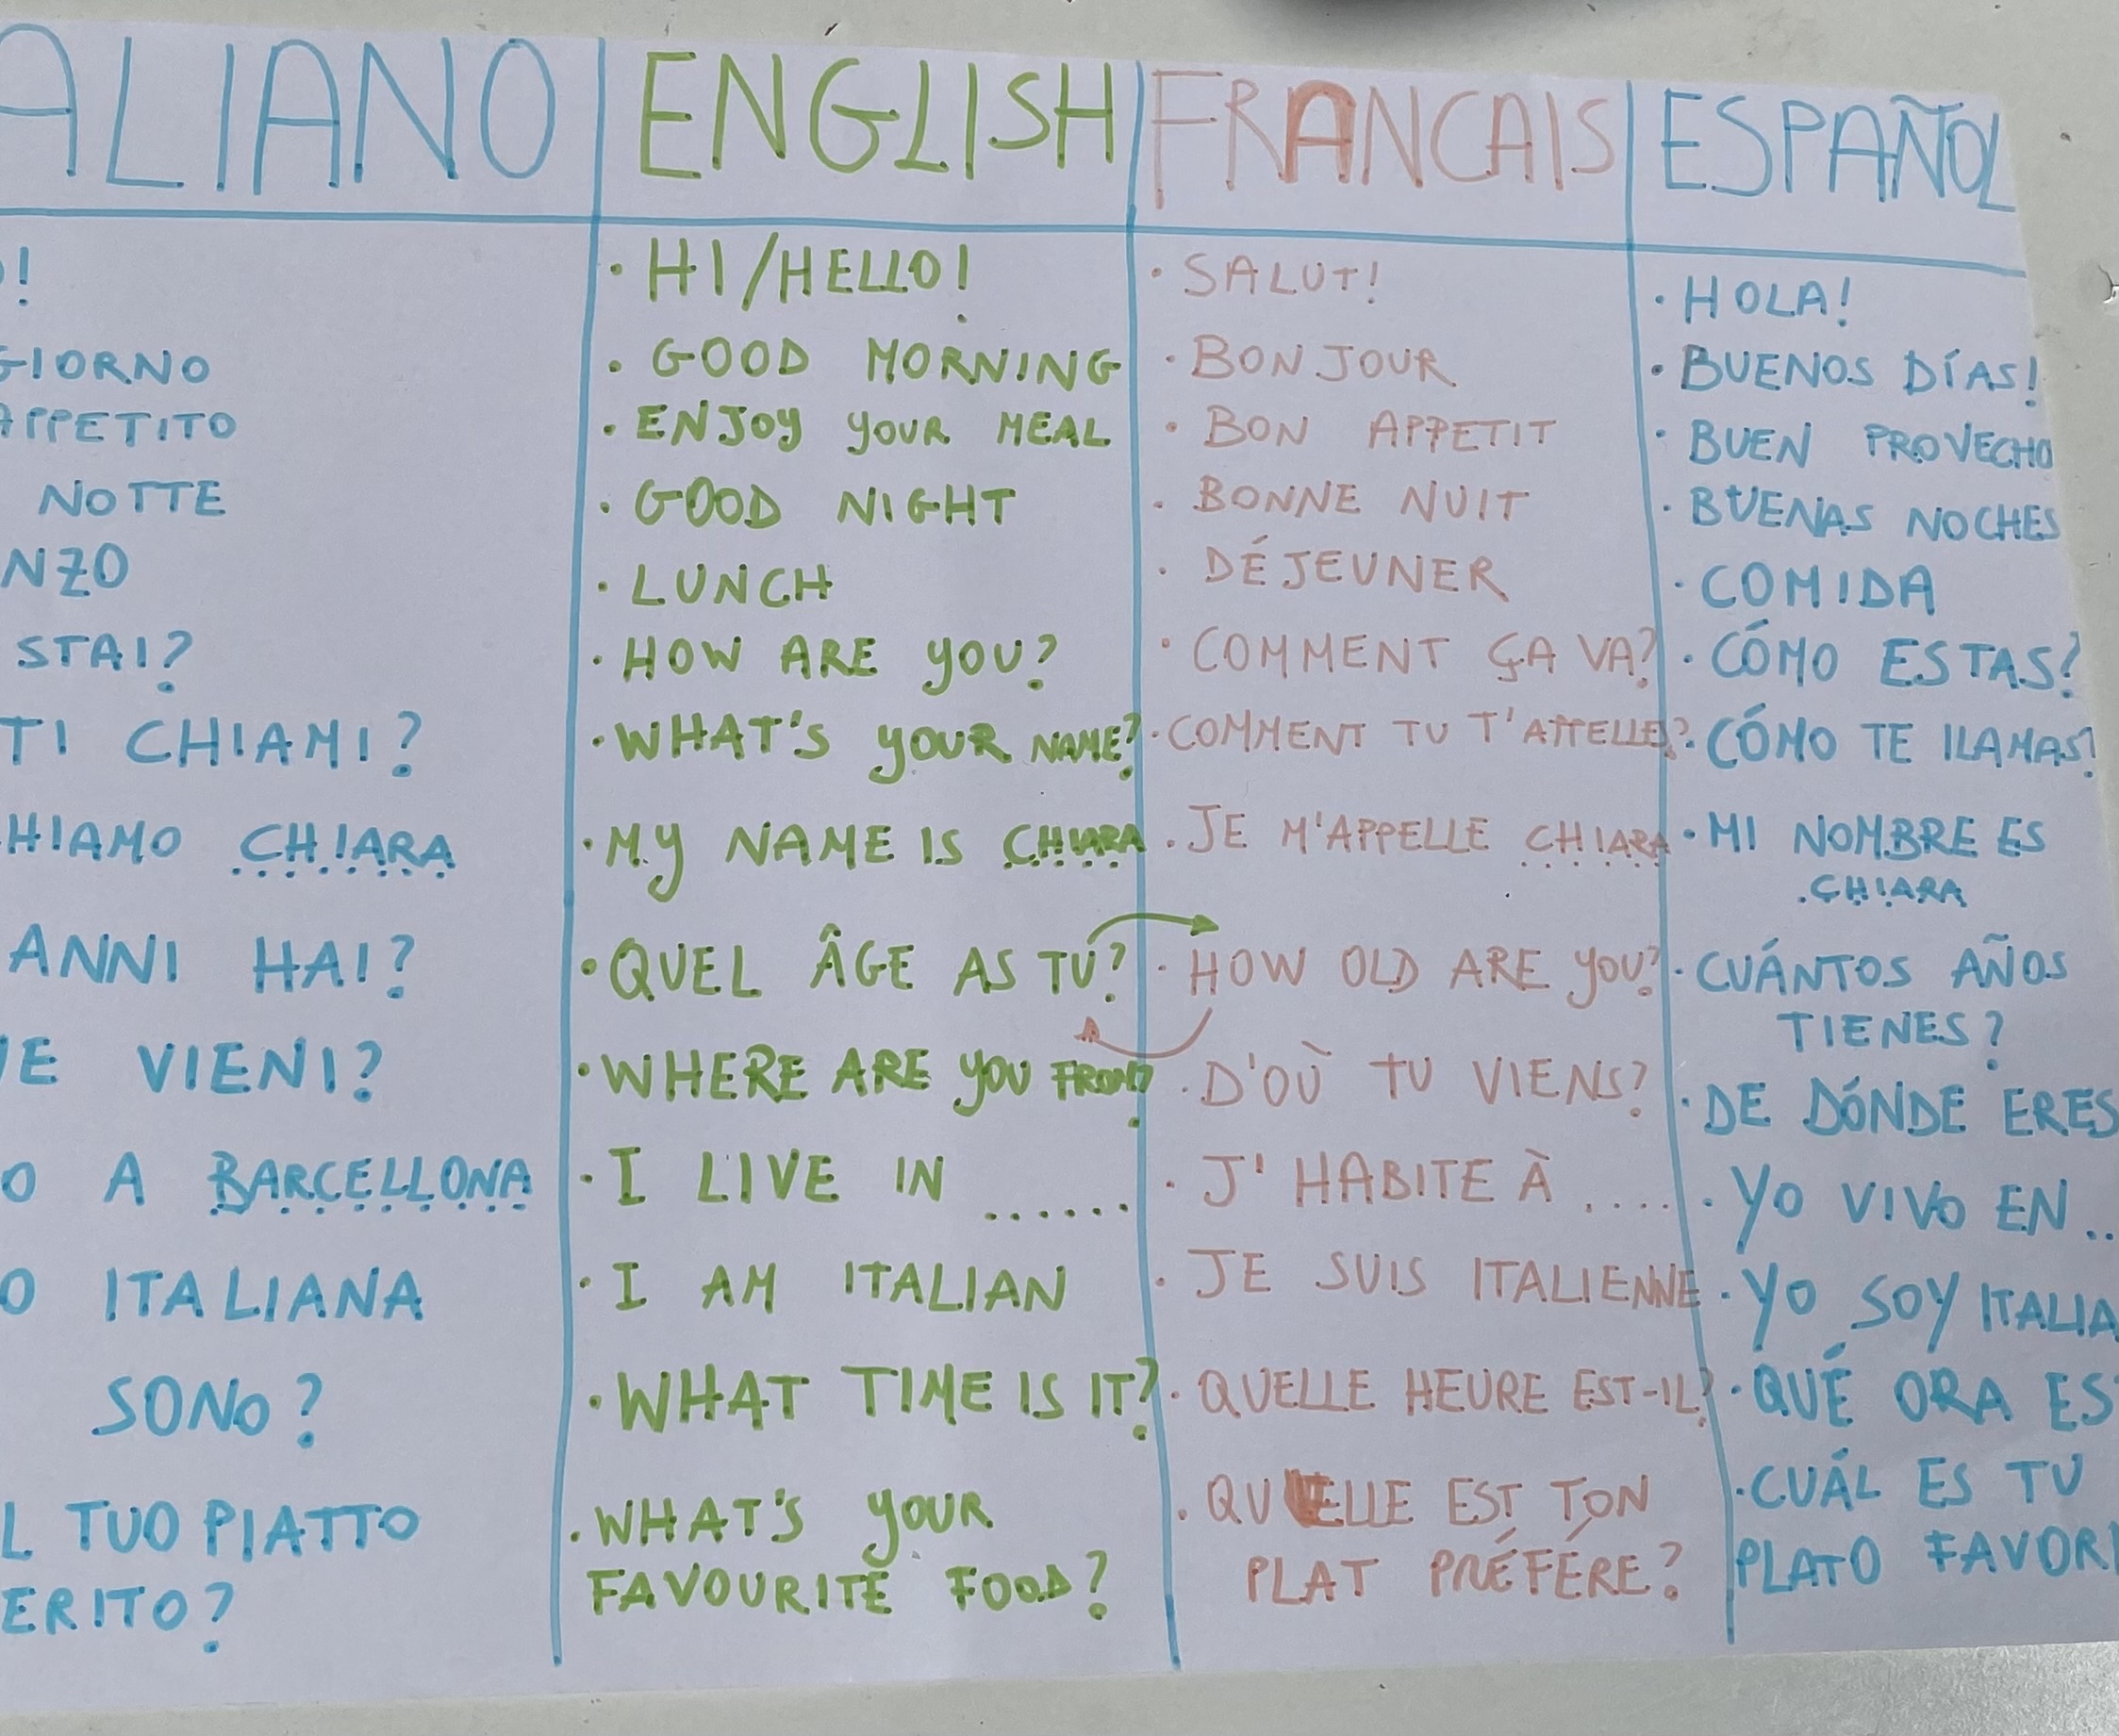 ALIANO ENGLISH FRANCAIS ESPAÑOL
O! · HI/HELLO! · SALUT! · HOLA!
GIORNO · GOOD MORNING · BONJOUR · BUENOS DÍAS!
APPETITO · ENJOY YOUR MEAL · BON APPETIT · BUEN PROVECHO
NOTTE · GOOD NIGHT · BONNE NUIT · BUENAS NOCHES
NZO · LUNCH · DÉJEUNER · COMIDA
STAI? · HOW ARE YOU? · COMMENT ÇA VA? · CÓMO ESTAS?
TI CHIAMI? · WHAT'S YOUR NAME? · COMMENT TU T'APPELLE? · CÓMO TE LLAMAS?
HIAMO CHIARA · MY NAME IS CHIARA · JE M'APPELLE CHIARA · MI NOMBRE ES
CHIARA
ANNI HAI? · QUEL ÂGE AS TU? · HOW OLD ARE YOU? · CUÁNTOS AÑOS
TIENES?
VE VIENI? · WHERE ARE YOU FROM? · D'OÙ TU VIENS? · DE DÓNDE ERES
O A BARCELLONA · I LIVE IN ...... · J'HABITE À .... · YO VIVO EN ..
O ITALIANA · I AM ITALIAN · JE SUIS ITALIENNE · YO SOY ITALIA
SONO? · WHAT TIME IS IT? · QUELLE HEURE EST-IL? · QUÉ ORA ES
L TUO PIATTO · WHAT'S YOUR · QUELLE EST TON · CUÁL ES TU
ERITO? FAVOURITE FOOD? PLAT PRÉFÉRE? PLATO FAVORI